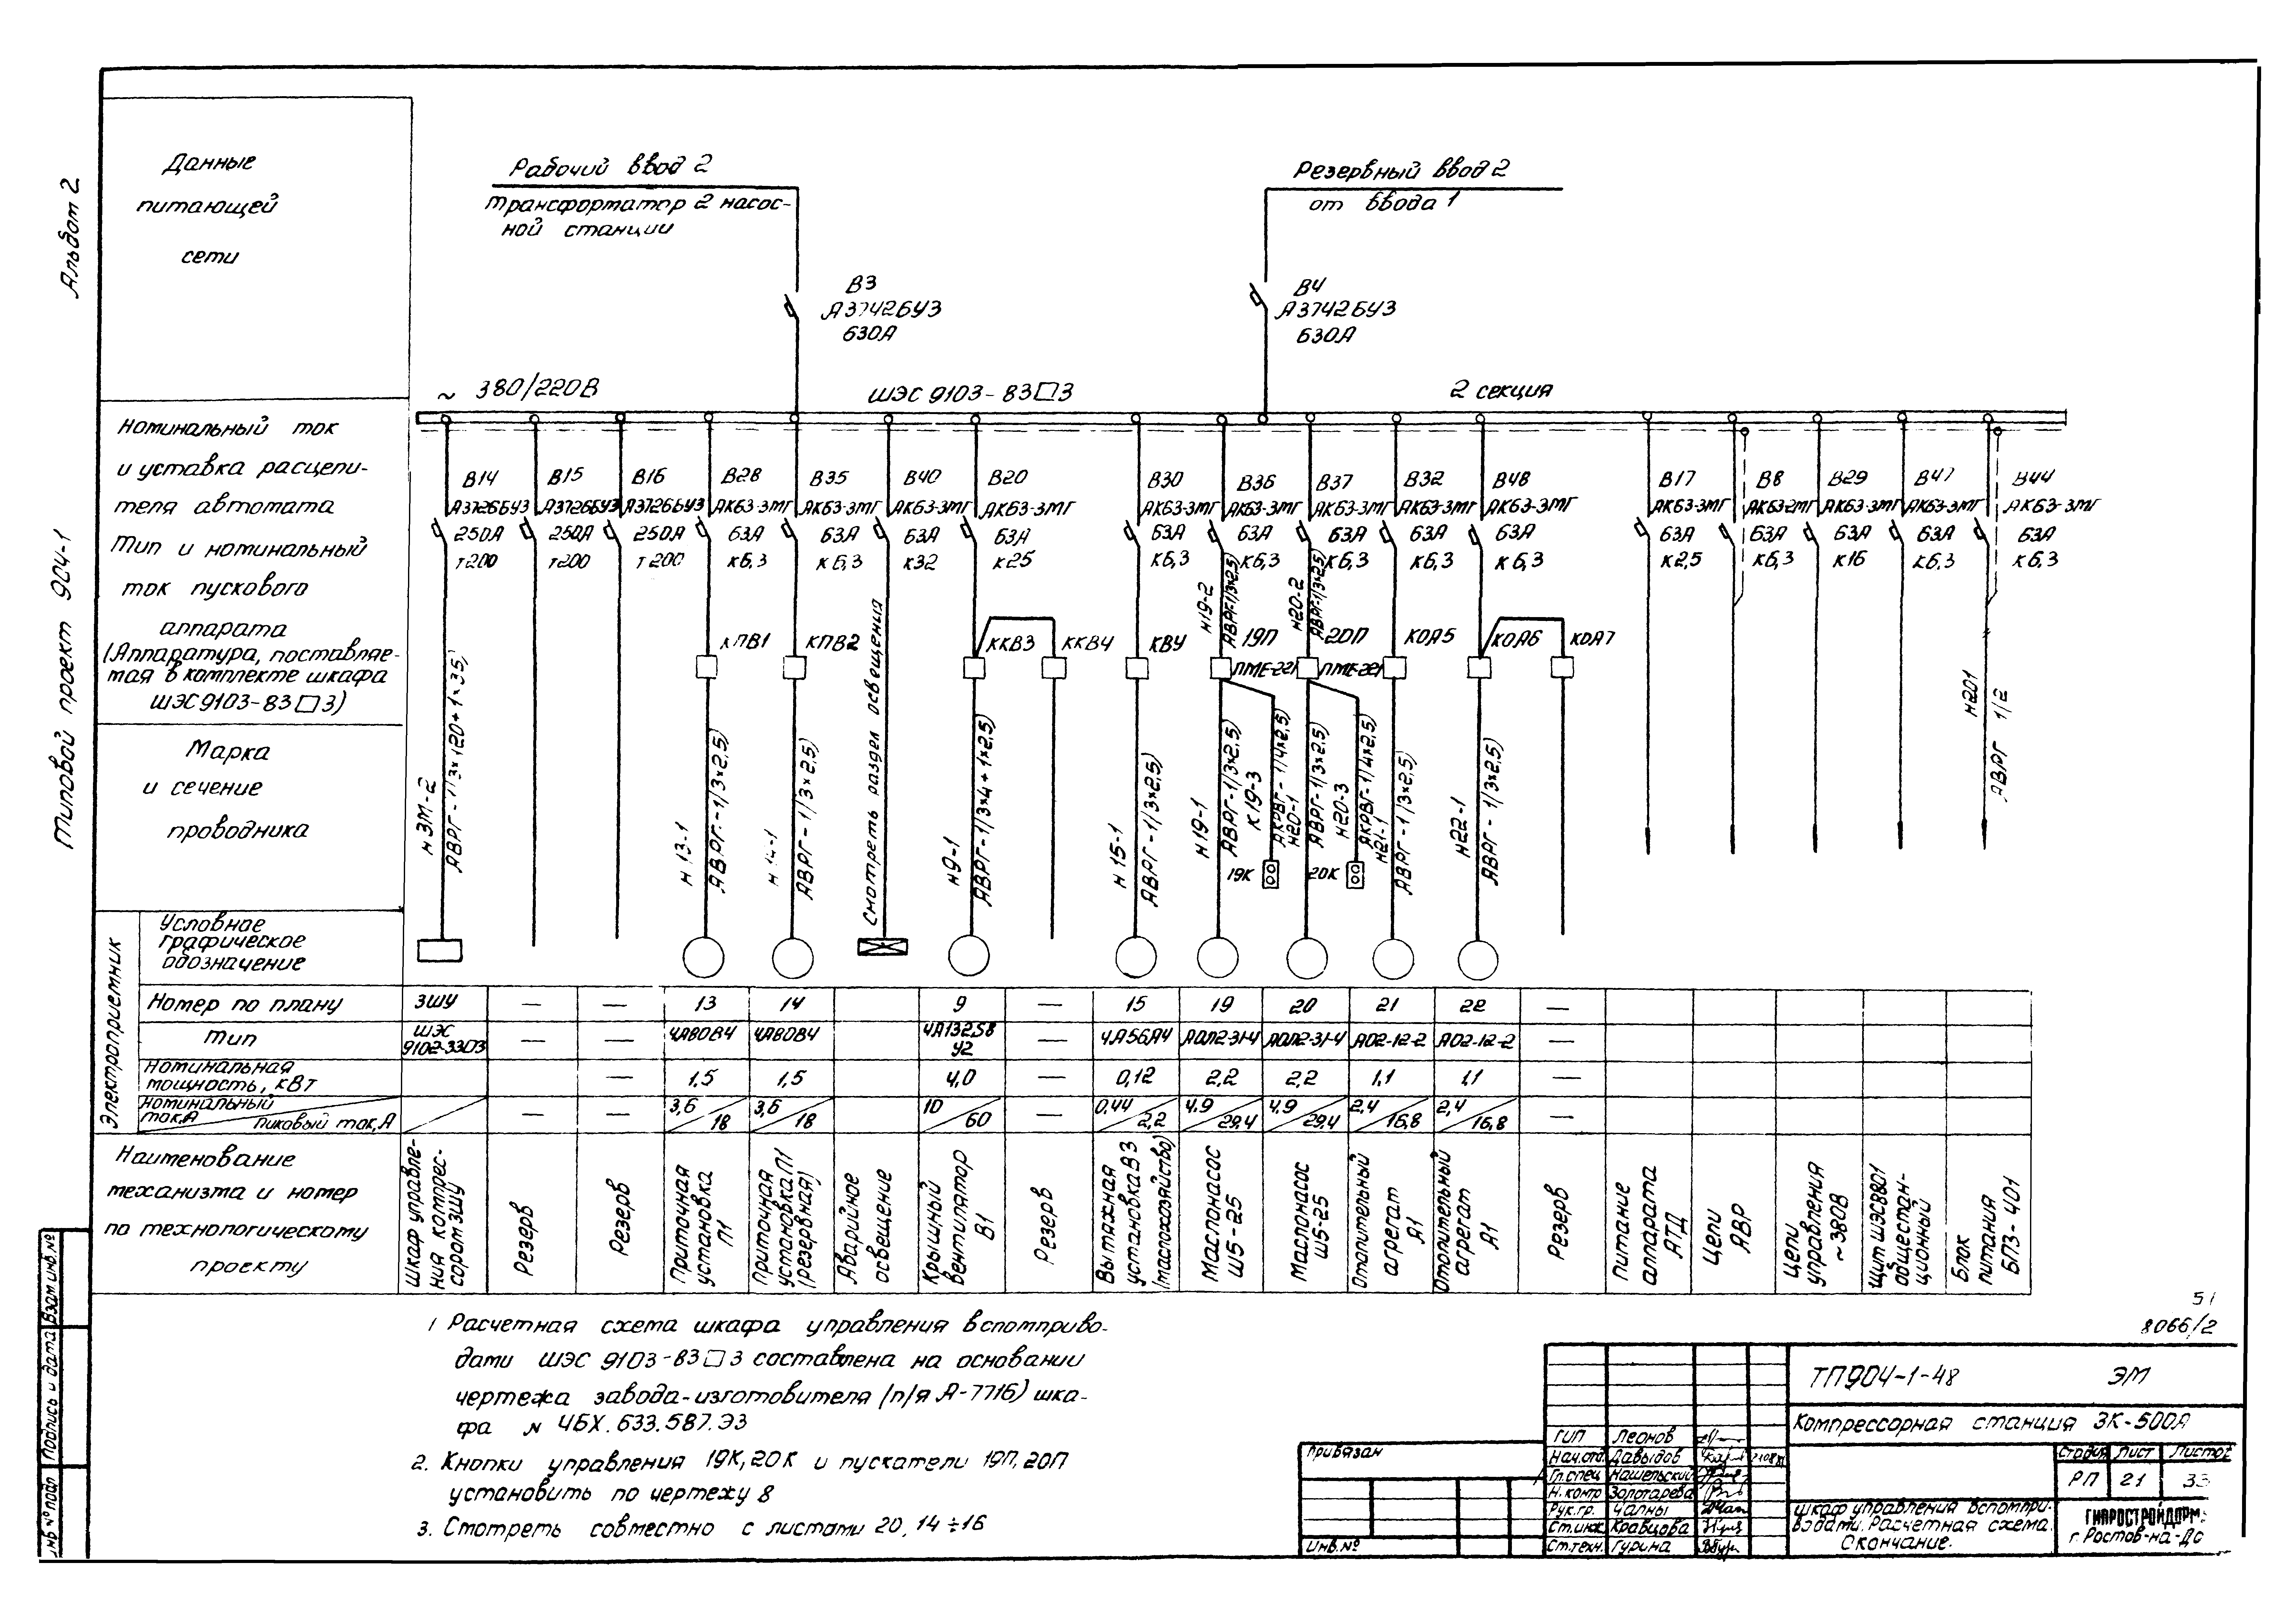 Альбом 2
Типовой проект 904-1
Данные
питающей
сети
Рабочий ввод 2
трансформатор 2 насос-
ной станции
Резервный ввод 2
от ввода 1
В3
А3742БУ3
630А
В4
А3742БУ3
630А
~ 380/220В
ШЭС 9103-83□3
2 секция
Номинальный ток
и уставка расцепи-
теля автомата
Тип и номинальный
ток пускового
аппарата
(Аппаратура, поставляе-
мая в комплекте шкафа
ШЭС9103-83□3)
В14 В15 В16 В28 В35 В40 В20 В30 В36 В37 В32 В48 В17 В8 В29 В47 В44
А3726БУ3 А3726БУ3 А3726БУ3 АК63-3МГ АК63-3МГ АК63-3МГ АК63-3МГ АК63-3МГ АК63-3МГ АК63-3МГ АК63-3МГ АК63-3МГ АК63-3МГ АК63-2МГ АК63-3МГ АК63-3МГ АК63-3МГ
250А 250А 250А 63А 63А 63А 63А 63А 63А 63А 63А 63А 63А 63А 63А 63А 63А
т200 т200 т200 к6,3 к6,3 к32 к25 к6,3 к6,3 к6,3 к6,3 к6,3 к2,5 к6,3 к16 к6,3 к6,3
н19-2
АВРГ-1(3×2,5)
н20-2
АВРГ-1(3×2,5)
КПВ1 КПВ2 ККВ3 ККВ4 КВУ 19П 20П КОА5 КОА6 КОА7
ПМЕ-221 ПМЕ-221
Марка
и сечение
проводника
н3М-2
АВРГ-1(3×120+1×35)
н13-1
АВРГ-1(3×2,5)
н14-1
АВРГ-1(3×2,5)
Смотреть раздел освещения
н9-1
АВРГ-1(3×4+1×2,5)
н15-1
АВРГ-1(3×2,5)
н19-1
АВРГ-1(3×2,5)
К19-3
АКРВГ-1(4×2,5)
н20-1
АВРГ-1(3×2,5)
н20-3
АКРВГ-1(4×2,5)
н21-1
АВРГ-1(3×2,5)
н22-1
АВРГ-1(3×2,5)
н201
АВРГ 1/2
19К 20К
Электроприемник
Условное
графическое
обозначение
Номер по плану 3ШУ — — 13 14 9 — 15 19 20 21 22 —
Тип ШЭС 9102-33□3 — — 4А80В4 4А80В4 4А132S8 У2 — 4А56А4 АОЛ2-31-4 АОЛ2-31-4 АО2-12-2 АО2-12-2 —
Номинальная
мощность, кВт — 1,5 1,5 4,0 — 0,12 2,2 2,2 1,1 1,1 —
Номинальный
ток,А Пиковый ток,А — — 3,6/18 3,6/18 10/60 — 0,44/2,2 4,9/29,4 4,9/29,4 2,4/16,8 2,4/16,8 —
Наименование
механизма и номер
по технологическому
проекту
Шкаф управле-
ния компрес-
сором 3ШУ
Резерв
Резерв
Приточная
установка
П1
Приточная
установка П1
(резервная)
Аварийное
освещение
Крышный
вентилятор
В1
Резерв
Вытяжная
установка В3
(маслохозяйство)
Маслонасос
Ш5-25
Маслонасос
Ш5-25
Отопительный
агрегат
А1
Отопительный
агрегат
А1
Резерв
Питание
аппарата
АТД
Цепи
АВР
Цепи
управления
~380В
Щит ШЭС8801
общестан-
ционный
Блок
питания
БПЗ-401
1 Расчетная схема шкафа управления вспомприво-
дами ШЭС 9103-83□3 составлена на основании
чертежа завода-изготовителя (п/я А-7716) шка-
фа № 4БХ.633.587.Э3
2. Кнопки управления 19К, 20К и пускатели 19П, 20П
установить по чертежу 8
3. Смотреть совместно с листами 20, 14÷16
51
8066/2
ТП904-1-48 ЭМ
Компрессорная станция 3К-500А
Стадия Лист Листов
РП 21 33
Шкаф управления вспомпри-
водами. Расчетная схема.
Окончание.
ГИПРОСТРОЙДОРМ
г. Ростов-на-До
ГИП Леонов
Нач.отд. Давыдов
Гл.спец Нашельский
Н.контр Золотарева
Рук.гр. Чапны
Ст.инж. Кравцова
Ст.техн. Гурина
Привязан
Инв.№
Взам инв.№
Подпись и дата
Инв №подл